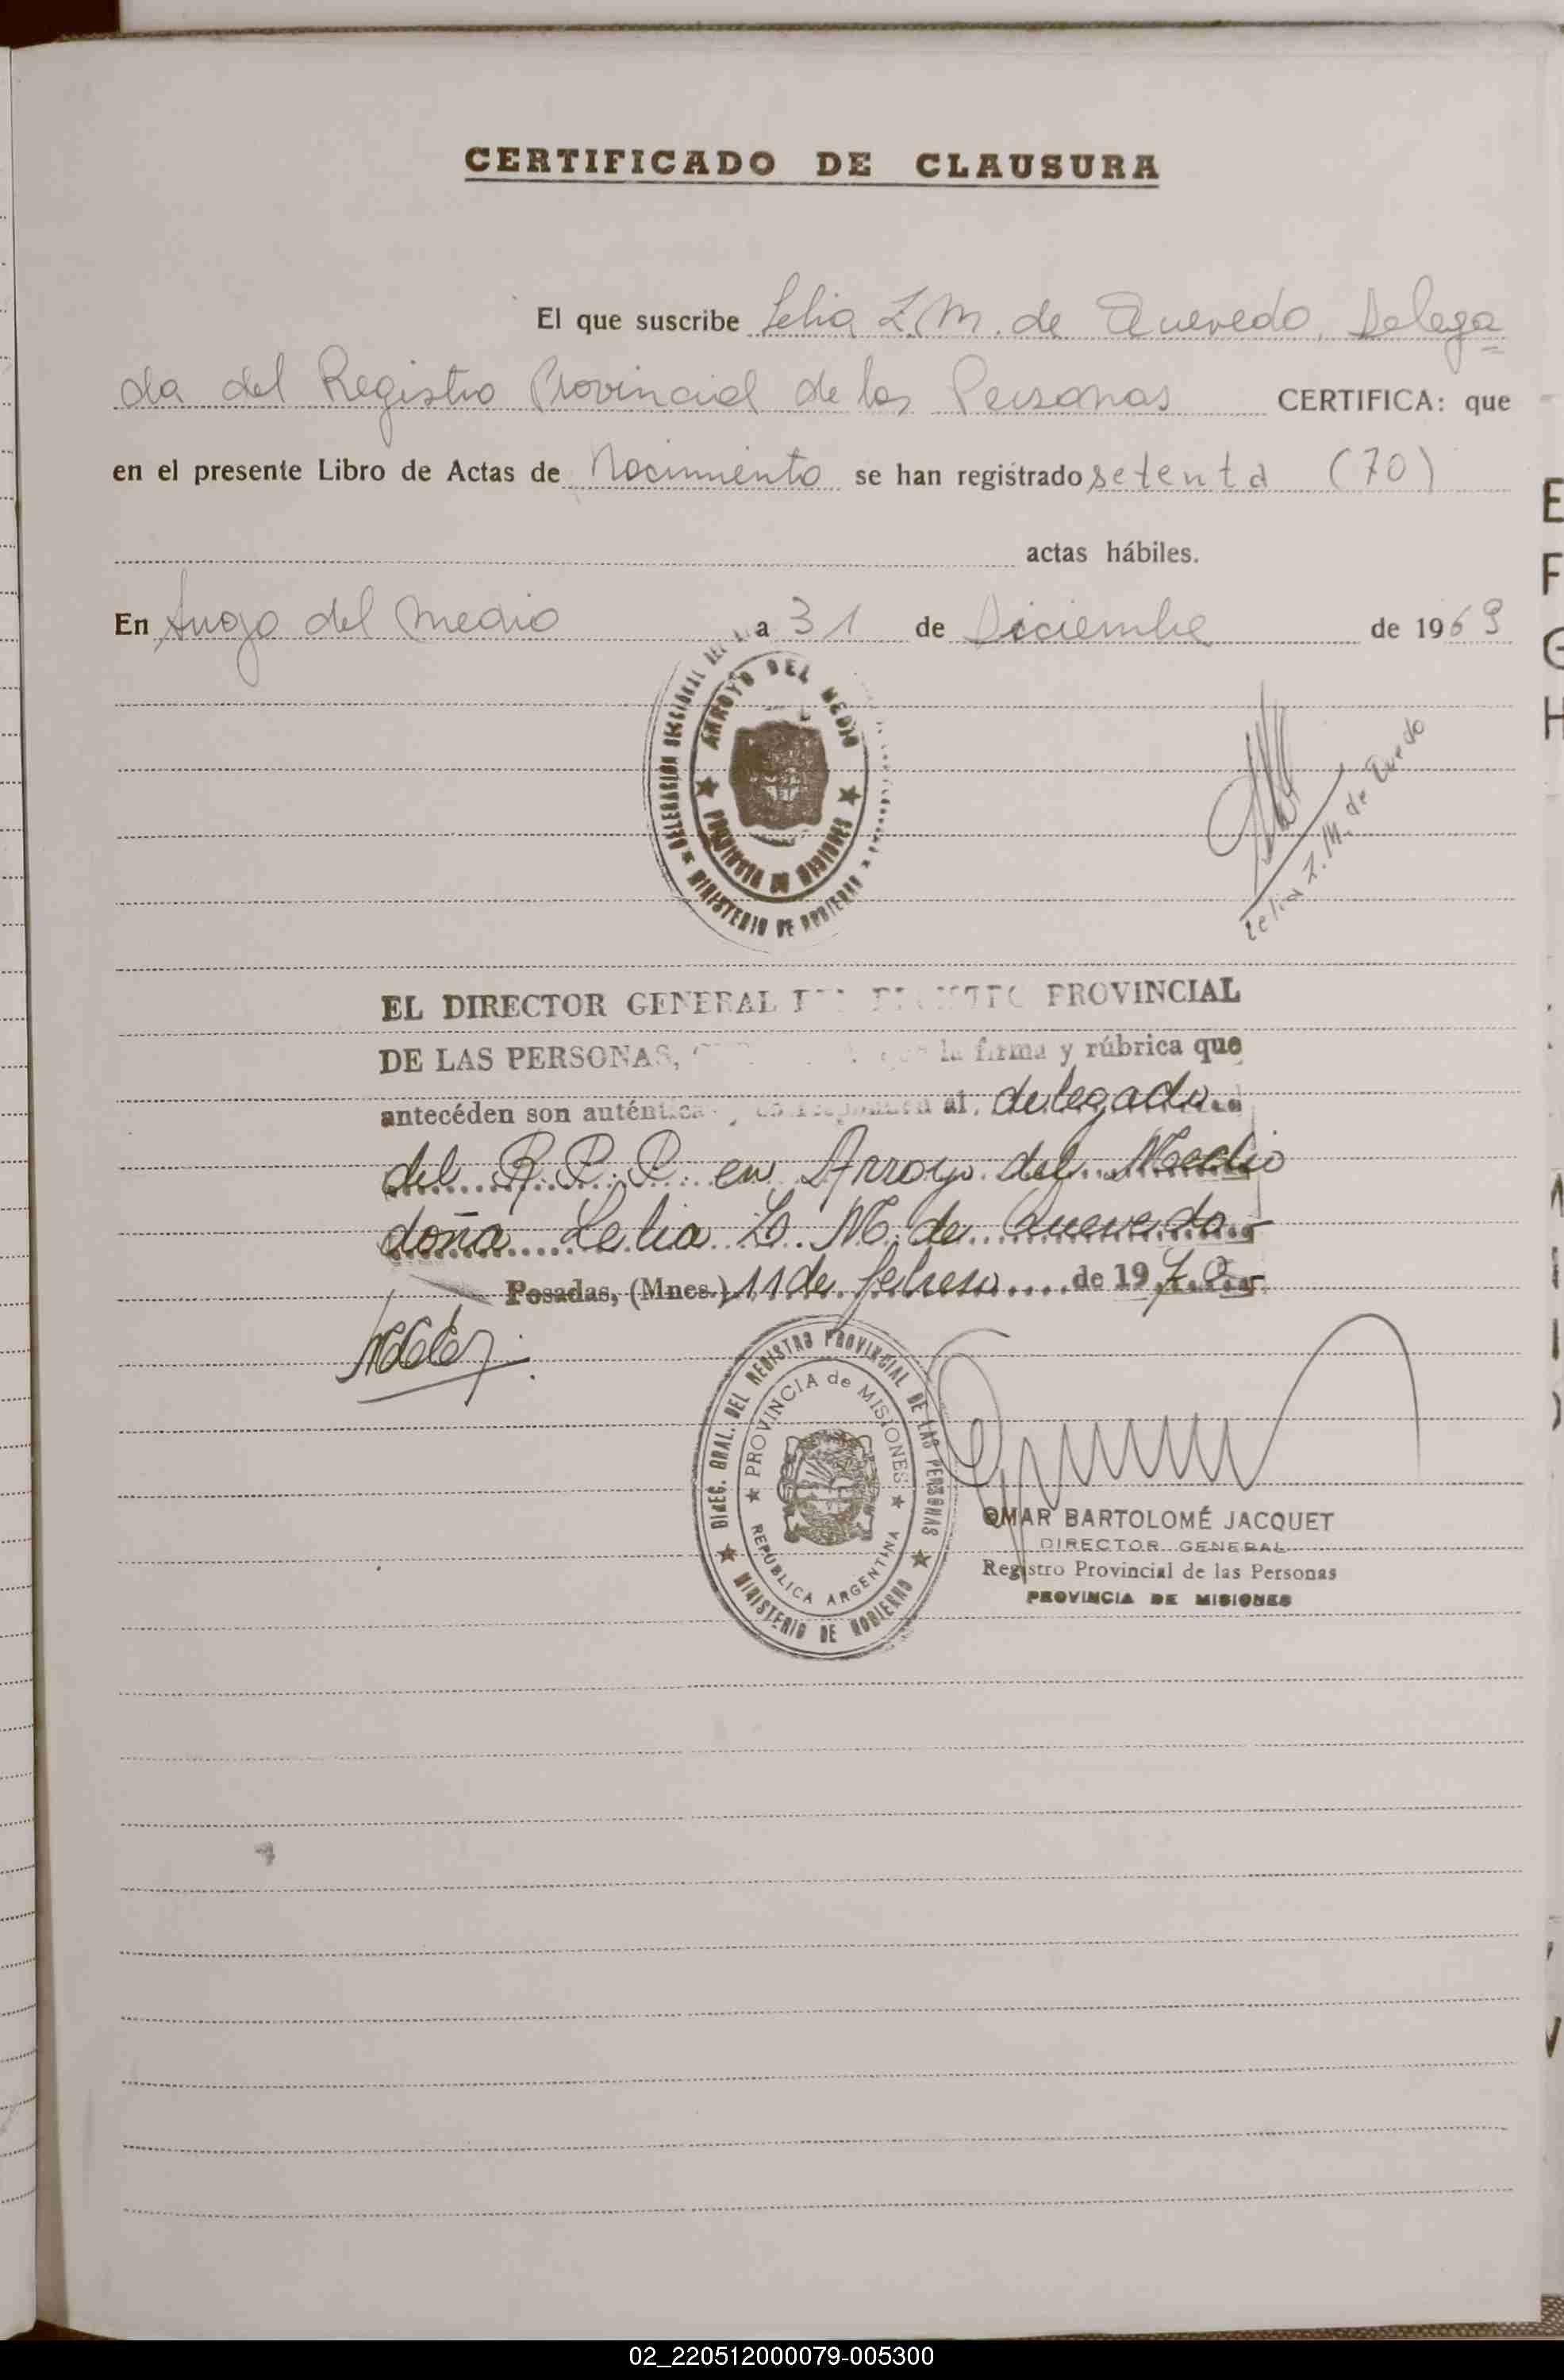 CERTIFICADO DE CLAUSURA
El que suscribe Lelia Z. M. de Quevedo, Delega
da del Registro Provincial de las Personas CERTIFICA: que
en el presente Libro de Actas de Nacimiento se han registrado setenta (70)
actas hábiles.
En Arroyo del Medio a 31 de Diciembre de 1969
DELEGACION SECCIONAL DEL
ARROYO DEL MEDIO
PROVINCIA DE MISIONES
MINISTERIO DE GOBIERNO
Lelia Z. M. de Quevedo
EL DIRECTOR GENERAL PROVINCIAL
DE LAS PERSONAS, la firma y rúbrica que
antecéden son auténticas al delegado
del R. P. P. en Arroyo del Medio
doña Lelia Z. M. de Quevedo.-
Posadas, (Mnes.) 11 de febrero de 1970.-
DIREC. GRAL. DEL REGISTRO PROVINCIAL DE LAS PERSONAS
PROVINCIA de MISIONES
REPUBLICA ARGENTINA
MINISTERIO DE GOBIERNO
OMAR BARTOLOMÉ JACQUET
DIRECTOR GENERAL
Registro Provincial de las Personas
PROVINCIA DE MISIONES
E
F
G
H
02_220512000079-005300